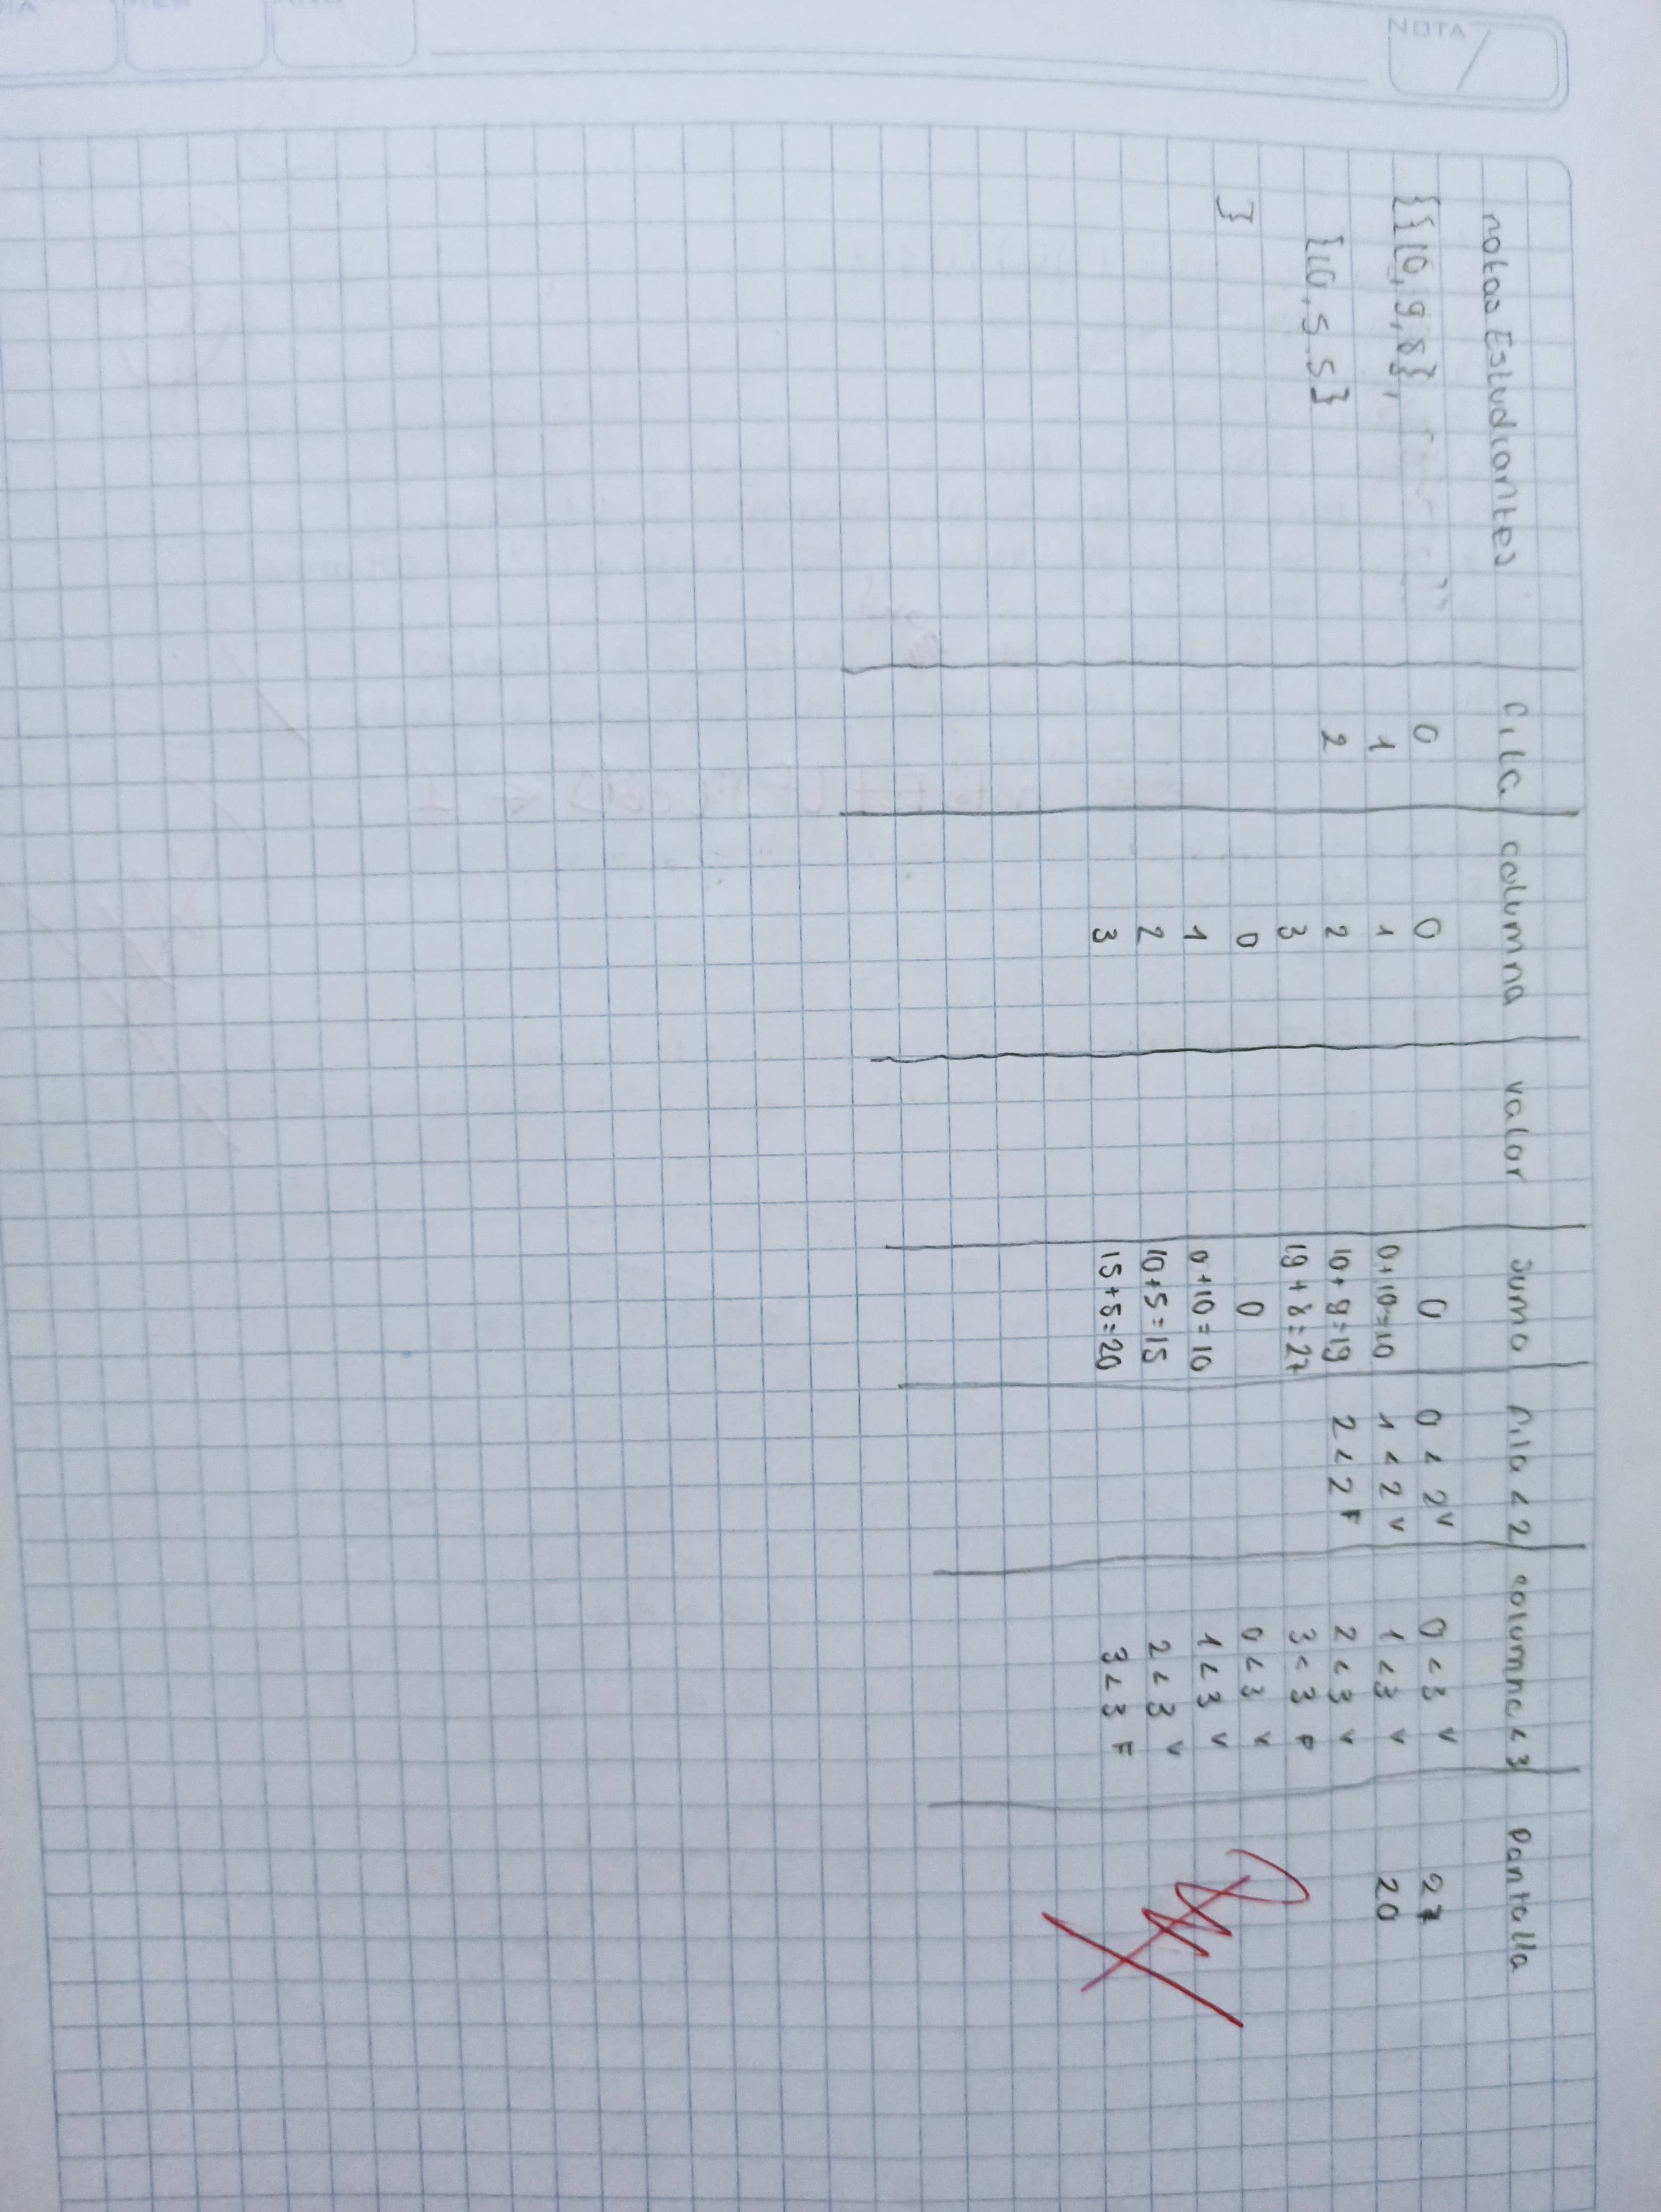 NOTA
notas Estudiantes | fila | columna | valor | suma | fila < 2 | columna < 3 | Pantalla
{{10, 9, 8}, | 0 | 0 | | 0 | 0 < 2 v | 0 < 3 v | 27
1 | 1 | | 0+10=10 | 1 < 2 v | 1 < 3 v | 20
{10, 5, 5} | 2 | 2 | | 10+9=19 | 2 < 2 F | 2 < 3 v
3 | | 19+8=27 | | 3 < 3 F
} | 0 | | 0 | | 0 < 3 v
1 | | 0+10=10 | | 1 < 3 v
2 | | 10+5=15 | | 2 < 3 v
3 | | 15+5=20 | | 3 < 3 F